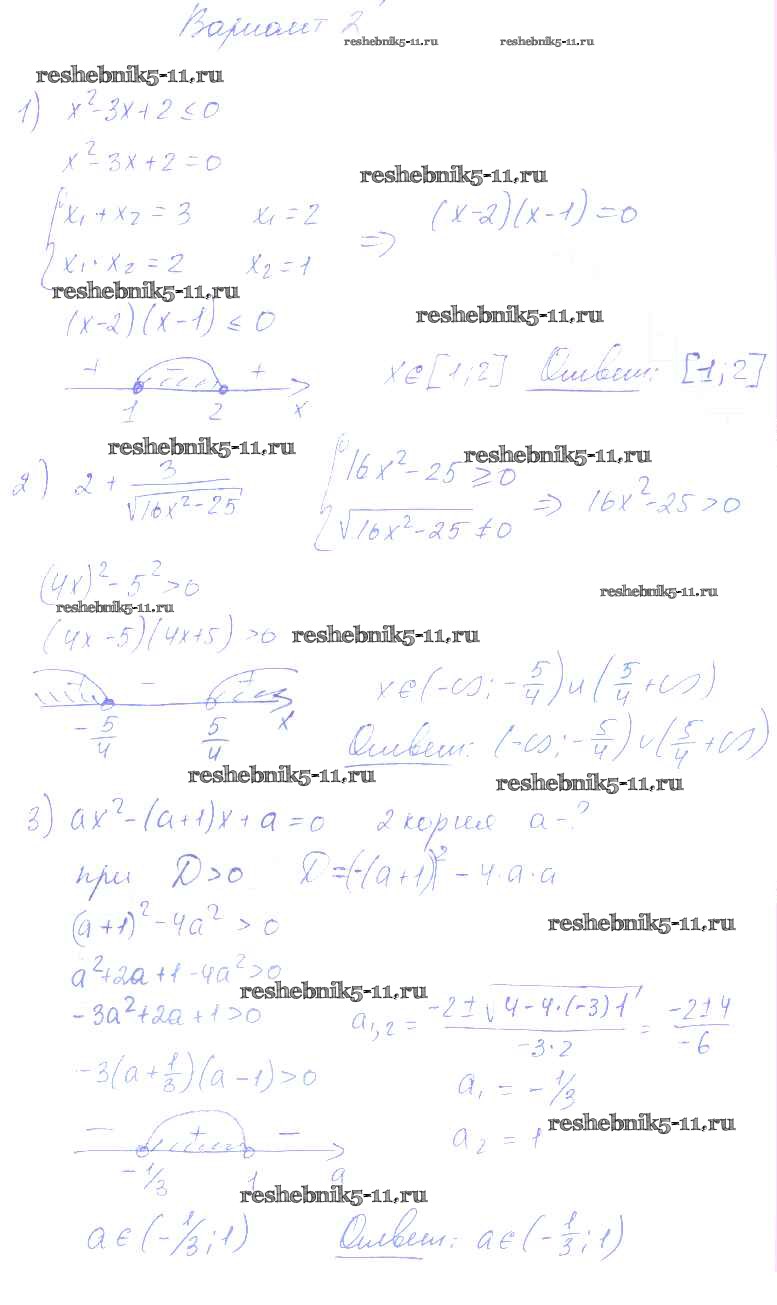 Вариант 2
reshebnik5-11.ru reshebnik5-11.ru
reshebnik5-11.ru
1) x²-3x+2≤0
x²-3x+2=0
reshebnik5-11.ru
{x₁+x₂=3 x₁=2 => (x-2)(x-1)=0
x₁·x₂=2 x₂=1
reshebnik5-11.ru
(x-2)(x-1)≤0 reshebnik5-11.ru
+ - + x∈[1;2] Ответ: [1;2]
1 2 x
reshebnik5-11.ru reshebnik5-11.ru
2) 2+3/√(16x²-25) {16x²-25≥0
√(16x²-25)≠0 => 16x²-25>0
(4x)²-5²>0
reshebnik5-11.ru reshebnik5-11.ru
(4x-5)(4x+5)>0 reshebnik5-11.ru
+ - + x∈(-∞;-5/4)∪(5/4+∞)
-5/4 5/4 x
Ответ: (-∞;-5/4)∪(5/4+∞)
reshebnik5-11.ru reshebnik5-11.ru
3) ax²-(a+1)x+a=0 2 корня a-?
при D>0 D=(-(a+1))²-4·a·a
(a+1)²-4a²>0 reshebnik5-11.ru
a²+2a+1-4a²>0
reshebnik5-11.ru
-3a²+2a+1>0 a₁,₂=(-2±√(4-4·(-3)1))/(-3·2)=(-2±4)/(-6)
-3(a+1/3)(a-1)>0 a₁=-1/3
- + - a₂=1 reshebnik5-11.ru
-1/3 1 a
reshebnik5-11.ru
a∈(-1/3;1) Ответ: a∈(-1/3;1)